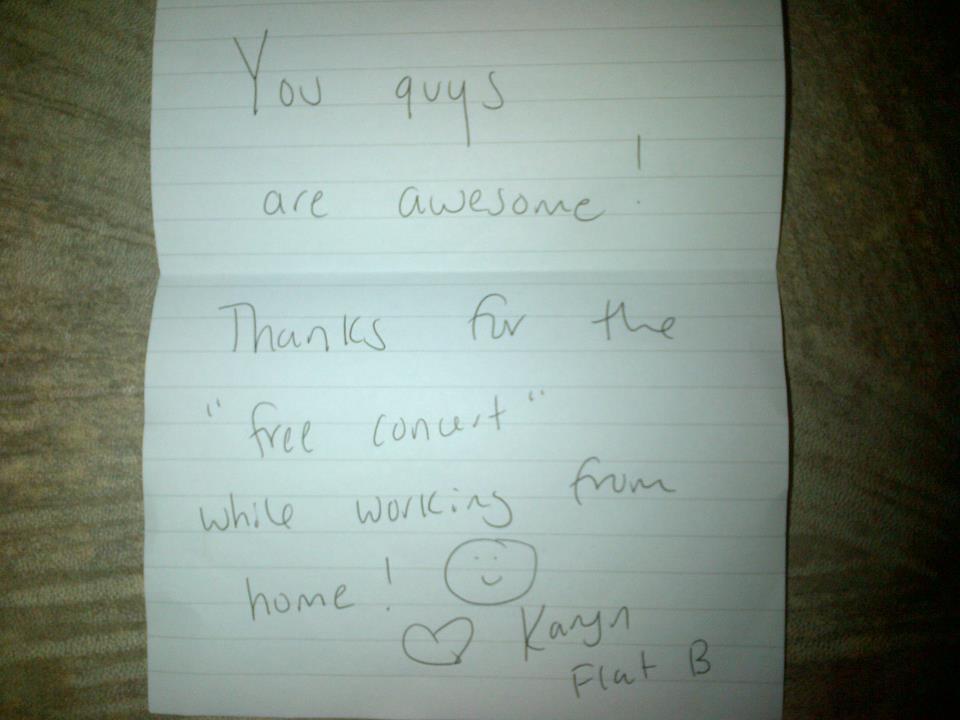 You guys
are awesome!
Thanks for the
"free concert"
while working from
home!
Karyn
Flat B